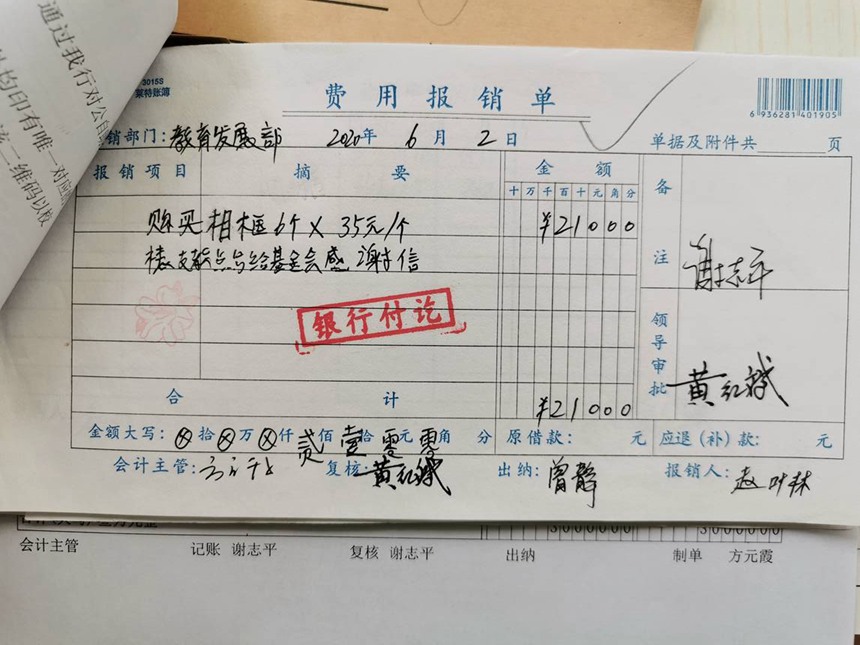 通过我行对公
均印有唯一对应
二维码以校
3015S
莱特账簿
费用报销单
6 936281 401905
销部门：教育发展部 2020年 6月 2日 单据及附件共 页
报销项目 摘要 金额 备注
十万千百十元角分
购买相框6个 X 35元/个 ¥21000
支教点写给基金会感谢信
谢志平
银行付讫
领导审批 黄红斌
合计 ¥21000
金额大写：⊗拾⊗万⊗仟贰佰壹拾零元零角 分 原借款： 元 应退（补）款： 元
会计主管： 复核：黄红斌 出纳：曾静 报销人：赵叶林
3000000 3000000
会计主管 记账 谢志平 复核 谢志平 出纳 制单 方元霞